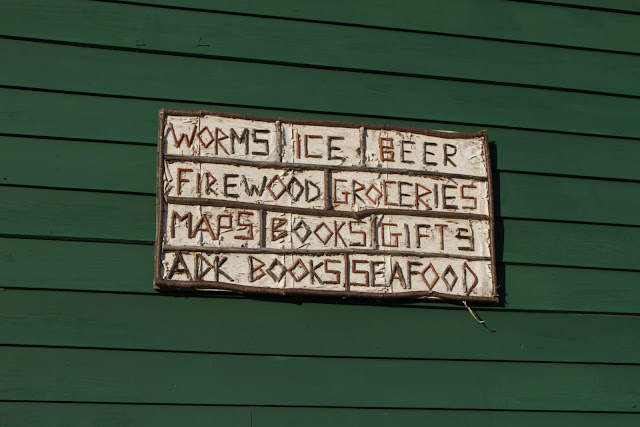 WORMS ICE BEER
FIREWOOD GROCERIES
MAPS BOOKS GIFTS
ADK BOOKS SEAFOOD